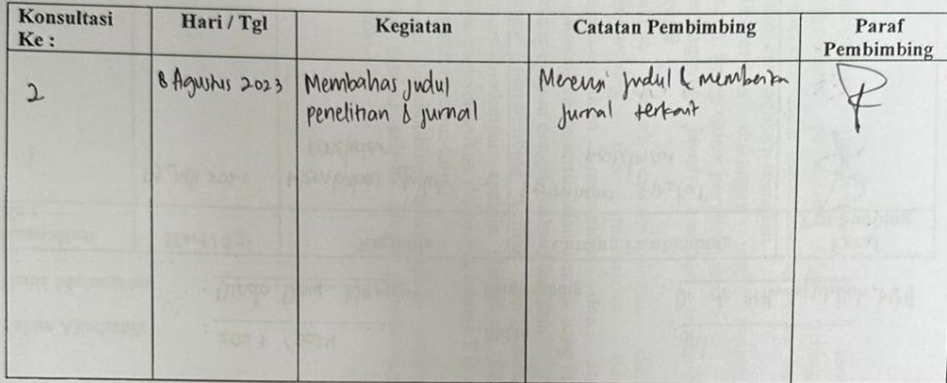 Konsultasi Ke :
Hari / Tgl
Kegiatan
Catatan Pembimbing
Paraf Pembimbing
2
8 Agustus 2023
Membahas judul
penelitian & jurnal
Merevisi judul & memberikan
jurnal terkait